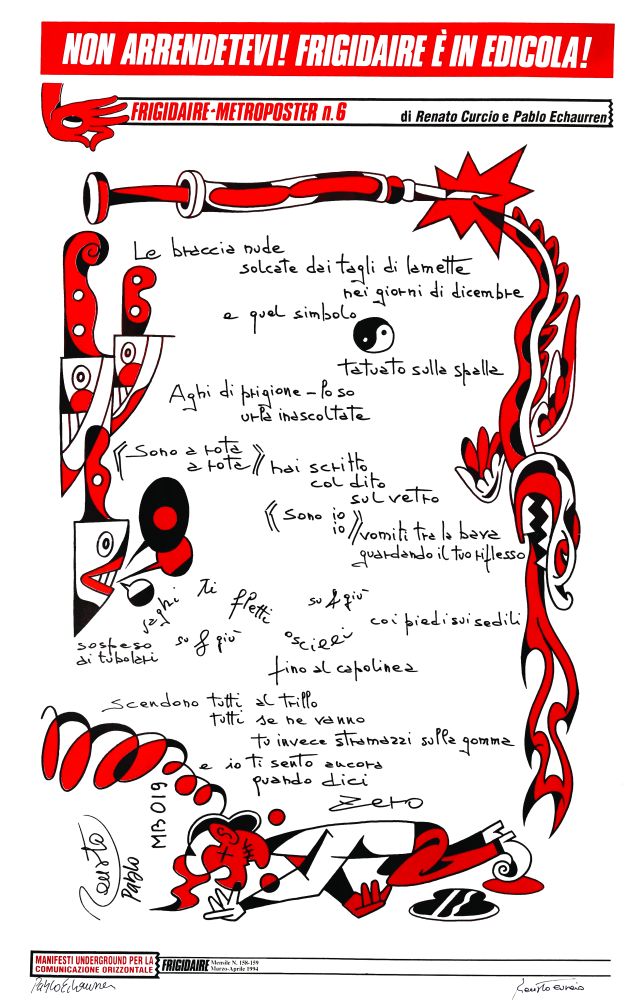 NON ARRENDETEVI! FRIGIDAIRE È IN EDICOLA!
FRIGIDAIRE-METROPOSTER n.6
di Renato Curcio e Pablo Echaurren
Le braccia nude
solcate dai tagli di lamette
nei giorni di dicembre
e quel simbolo
tatuato sulla spalla
Aghi di prigione – lo so
urla inascoltate
《Sono a rota
a rota》 hai scritto
col dito
sul vetro
《Sono io
io》 vomiti tra la bava
guardando il tuo riflesso
saghi
ti fletti su & giù
coi piedi sui sedili
sospeso
ai tubolari
su & giù
oscilli
fino al capolinea
scendono tutti al trillo
tutti se ne vanno
tu invece stramazzi sulla gomma
e io ti sento ancora
quando dici
Zero
Renato
Pablo
MB 019
MANIFESTI UNDERGROUND PER LA
COMUNICAZIONE ORIZZONTALE
FRIGIDAIRE
Mensile N. 158-159
Marzo-Aprile 1994
Pablo Echaurren
Renato Curcio